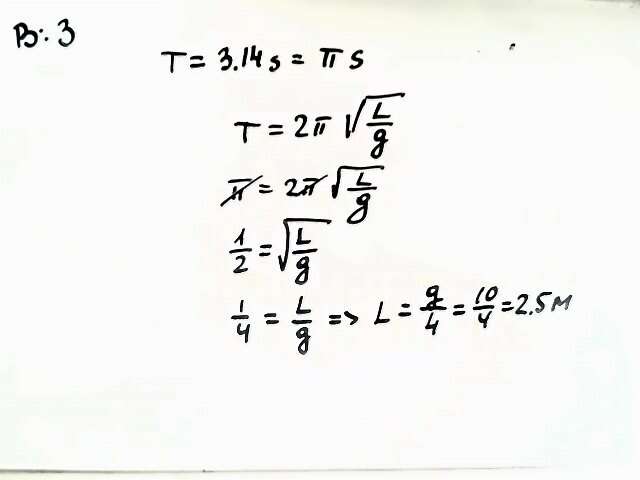 B: 3
T = 3.14 s = π s
T = 2π √(L/g)
π = 2π √(L/g)
1/2 = √(L/g)
1/4 = L/g => L = g/4 = 10/4 = 2.5 M